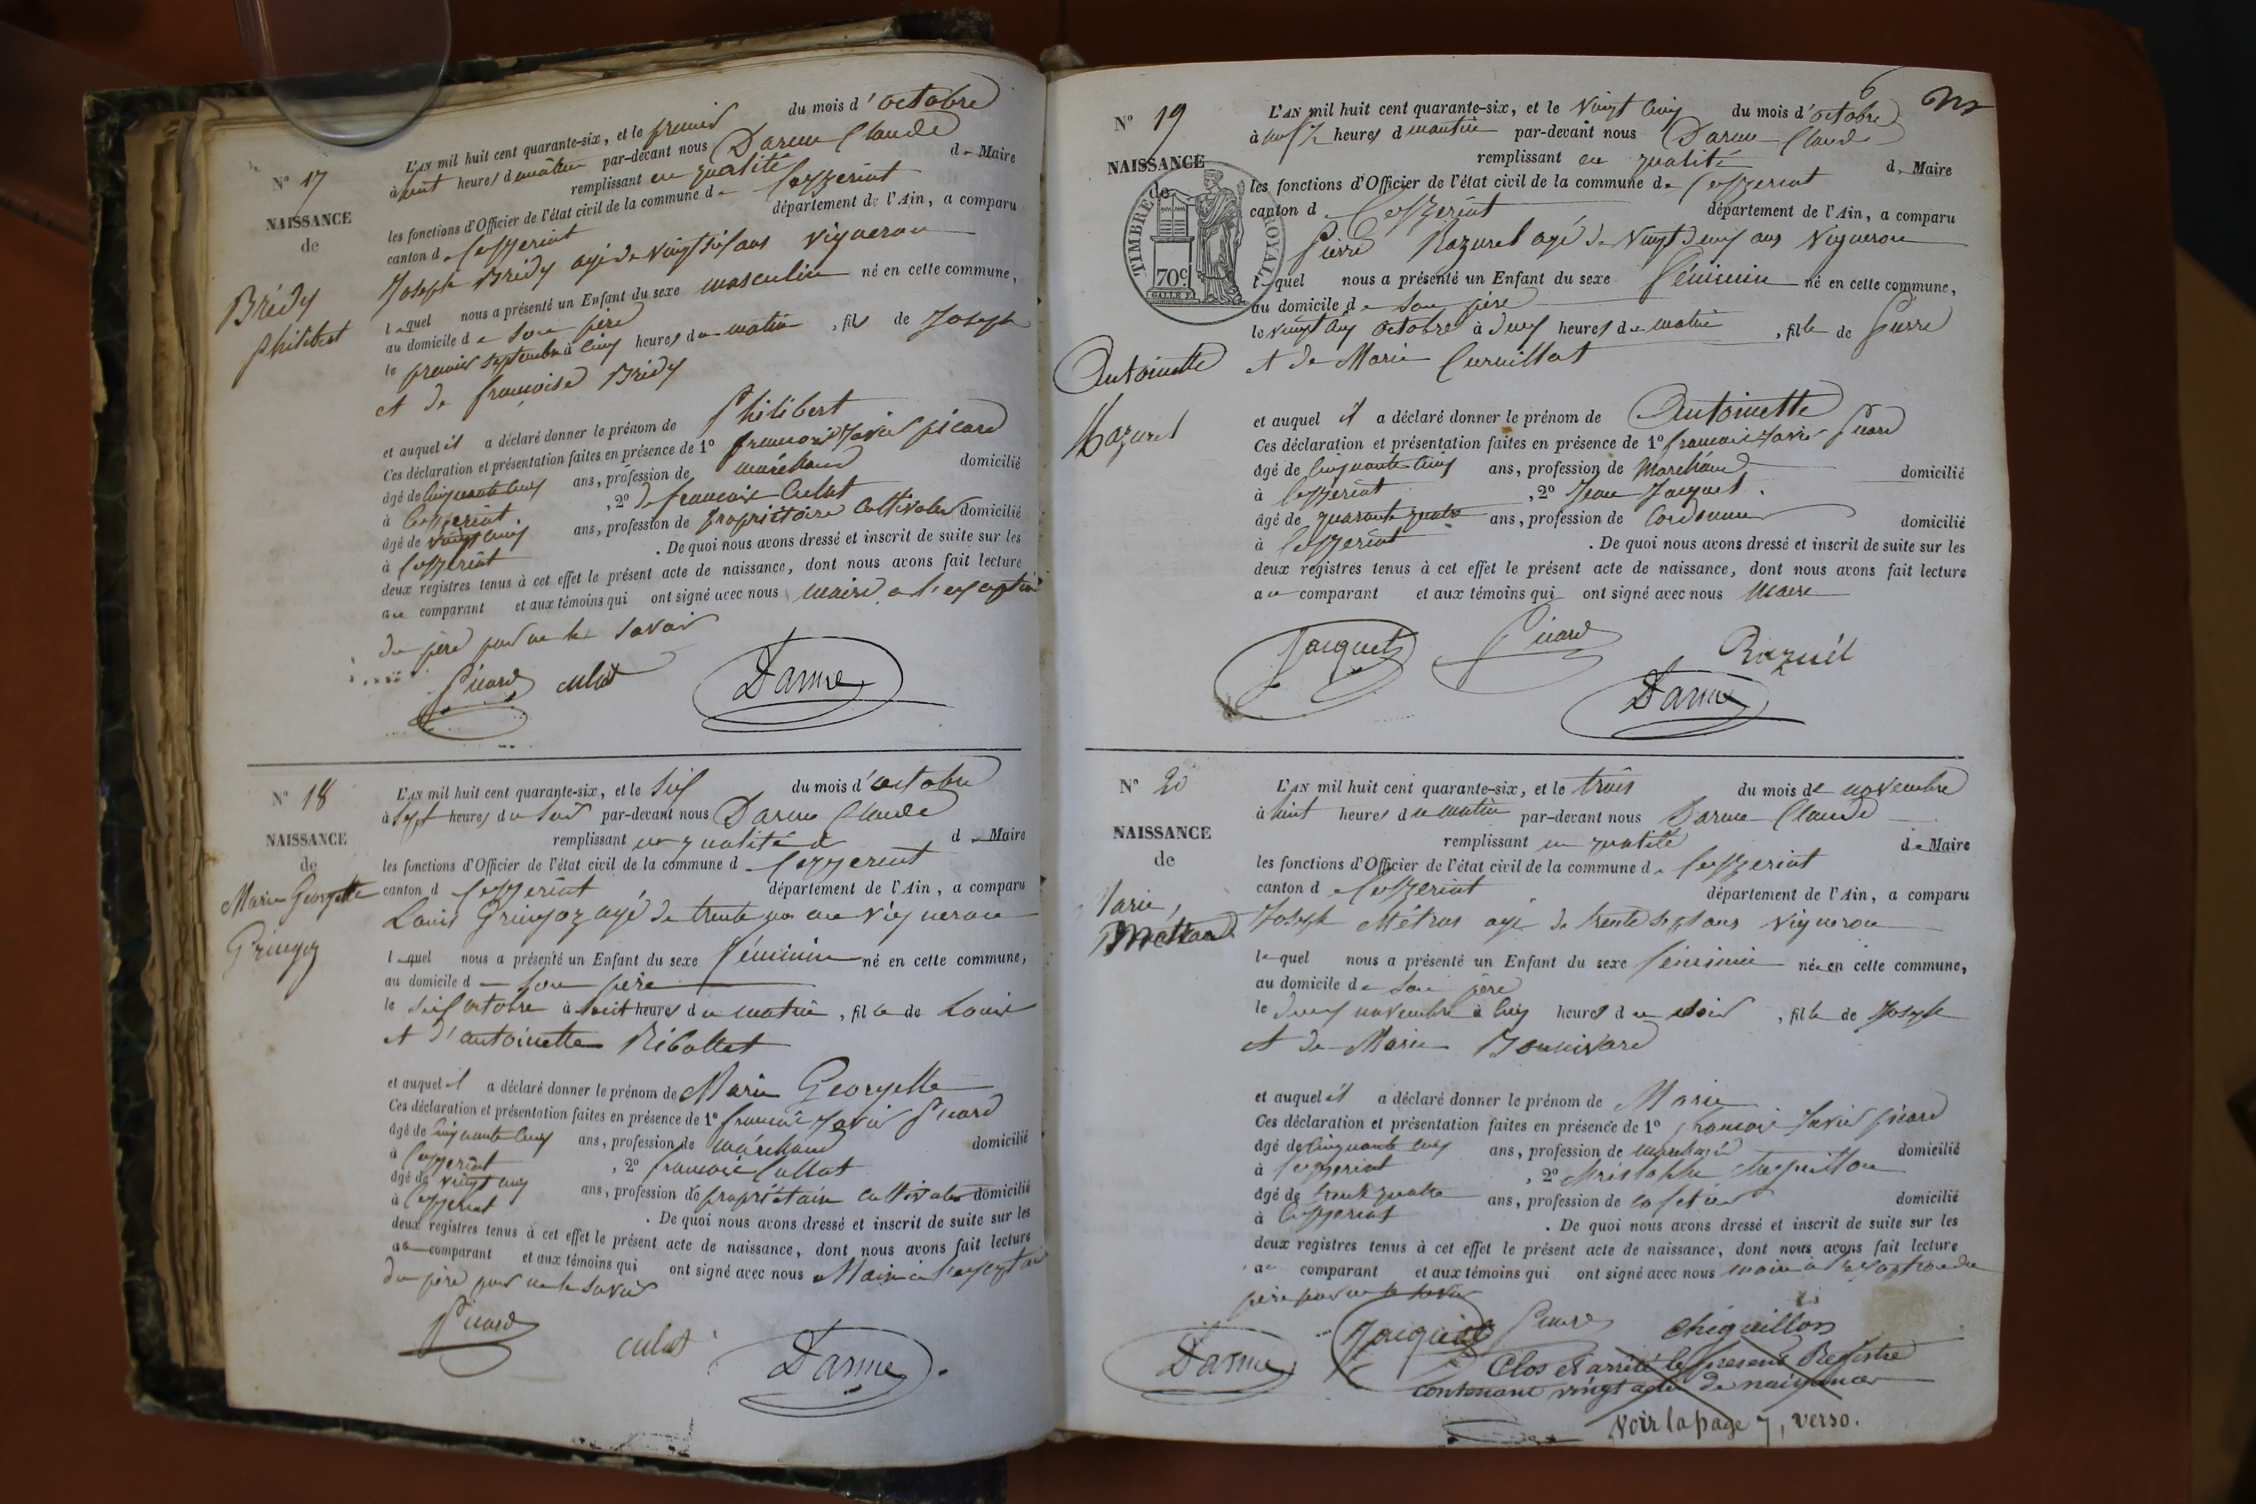 N° 17
NAISSANCE
de
Brédy
Philibert
L'AN mil huit cent quarante-six, et le premier du mois d'octobre
à huit heures du matin par-devant nous Darme Claude
remplissant en qualité de Maire
les fonctions d'Officier de l'état civil de la commune de Ceyzeriat
canton de Ceyzeriat département de l'Ain, a comparu
Joseph Brédy agé de vingt six ans vigneron
lequel nous a présenté un Enfant du sexe masculin né en cette commune,
au domicile de son père
le premier septembre à cinq heures du matin, fils de Joseph
et de françoise Brédy
et auquel il a déclaré donner le prénom de Philibert
Ces déclaration et présentation faites en présence de 1° françois Xavier picard
âgé de cinquante cinq ans, profession de marchand domicilié
à Ceyzeriat, 2° de françois Culat
âgé de vingt cinq ans, profession de propriétaire cultivateur domicilié
à Ceyzeriat. De quoi nous avons dressé et inscrit de suite sur les
deux registres tenus à cet effet le présent acte de naissance, dont nous avons fait lecture
au comparant et aux témoins qui ont signé avec nous maire a l'exception
du père pour ne le savoir
Picard culat Darme
N° 18
NAISSANCE
de
Marie Georgette
Gringoz
L'AN mil huit cent quarante-six, et le six du mois d'octobre
à sept heures du soir par-devant nous Darme Claude
remplissant en qualité de Maire
les fonctions d'Officier de l'état civil de la commune d Ceyzeriat
canton d Ceyzeriat département de l'Ain, a comparu
Louis Gringoz agé de trente un an vigneron
lequel nous a présenté un Enfant du sexe féminin né en cette commune,
au domicile d son père
le six octobre à huit heures du matin, fille de Louis
et d'antoinette Ribollet
et auquel il a déclaré donner le prénom de Marie Georgette
Ces déclaration et présentation faites en présence de 1° françois Xavier Picard
âgé de cinquante cinq ans, profession de marchand domicilié
à Ceyzeriat, 2° françois Cullat
âgé de vingt cinq ans, profession de propriétaire cultivateur domicilié
à Ceyzeriat. De quoi nous avons dressé et inscrit de suite sur les
deux registres tenus à cet effet le présent acte de naissance, dont nous avons fait lecture
au comparant et aux témoins qui ont signé avec nous Maire à l'exception
du père pour ne le savoir
Picard culat Darme
6
N° 19
NAISSANCE
de
TIMBRE ROYAL
70 c.
Antoinette
Razurel
L'AN mil huit cent quarante-six, et le vingt cinq du mois d'octobre
à heures d matin par-devant nous Darme Claude
remplissant en qualité de Maire
les fonctions d'Officier de l'état civil de la commune de Ceyzeriat
canton d Ceyzeriat département de l'Ain, a comparu
Pierre Razurel agé de vingt deux ans vigneron
lequel nous a présenté un Enfant du sexe féminin né en cette commune,
au domicile de son père
le vingt cinq octobre à deux heures du matin, fille de Pierre
et de Marie
et auquel il a déclaré donner le prénom de Antoinette
Ces déclaration et présentation faites en présence de 1° françois Xavier Picard
âgé de cinquante cinq ans, profession de Marchand domicilié
à Ceyzeriat, 2° Jean Jacquet.
âgé de quarante quatre ans, profession de Cordonnier domicilié
à Ceyzeriat. De quoi nous avons dressé et inscrit de suite sur les
deux registres tenus à cet effet le présent acte de naissance, dont nous avons fait lecture
au comparant et aux témoins qui ont signé avec nous Maire
Jacquet Picard Razuél
Darme
N° 20
NAISSANCE
de
Marie,
L'AN mil huit cent quarante-six, et le trois du mois de novembre
à huit heures du matin par-devant nous Darme Claude
remplissant en qualité de Maire
les fonctions d'Officier de l'état civil de la commune de Ceyzeriat
canton de Ceyzeriat département de l'Ain, a comparu
Joseph Métras agé de trente sept ans vigneron
lequel nous a présenté un Enfant du sexe féminin née en cette commune,
au domicile de son père
le deux novembre à cinq heures du soir, fille de Joseph
et de Marie Bonnivard
et auquel il a déclaré donner le prénom de Marie
Ces déclaration et présentation faites en présence de 1° françois Xavier picard
âgé de cinquante cinq ans, profession de marchand domicilié
à Ceyzeriat, 2° Christophe Chiquillon
âgé de trente quatre ans, profession de cafetier domicilié
à Ceyzeriat. De quoi nous avons dressé et inscrit de suite sur les
deux registres tenus à cet effet le présent acte de naissance, dont nous avons fait lecture
au comparant et aux témoins qui ont signé avec nous maire à l'exception du
père pour ne le savoir
Darme Jacquet Picard Chiquillon
Clos et arrêté le present Registre
contenant vingt actes de naissances
Voir la page 7, verso.